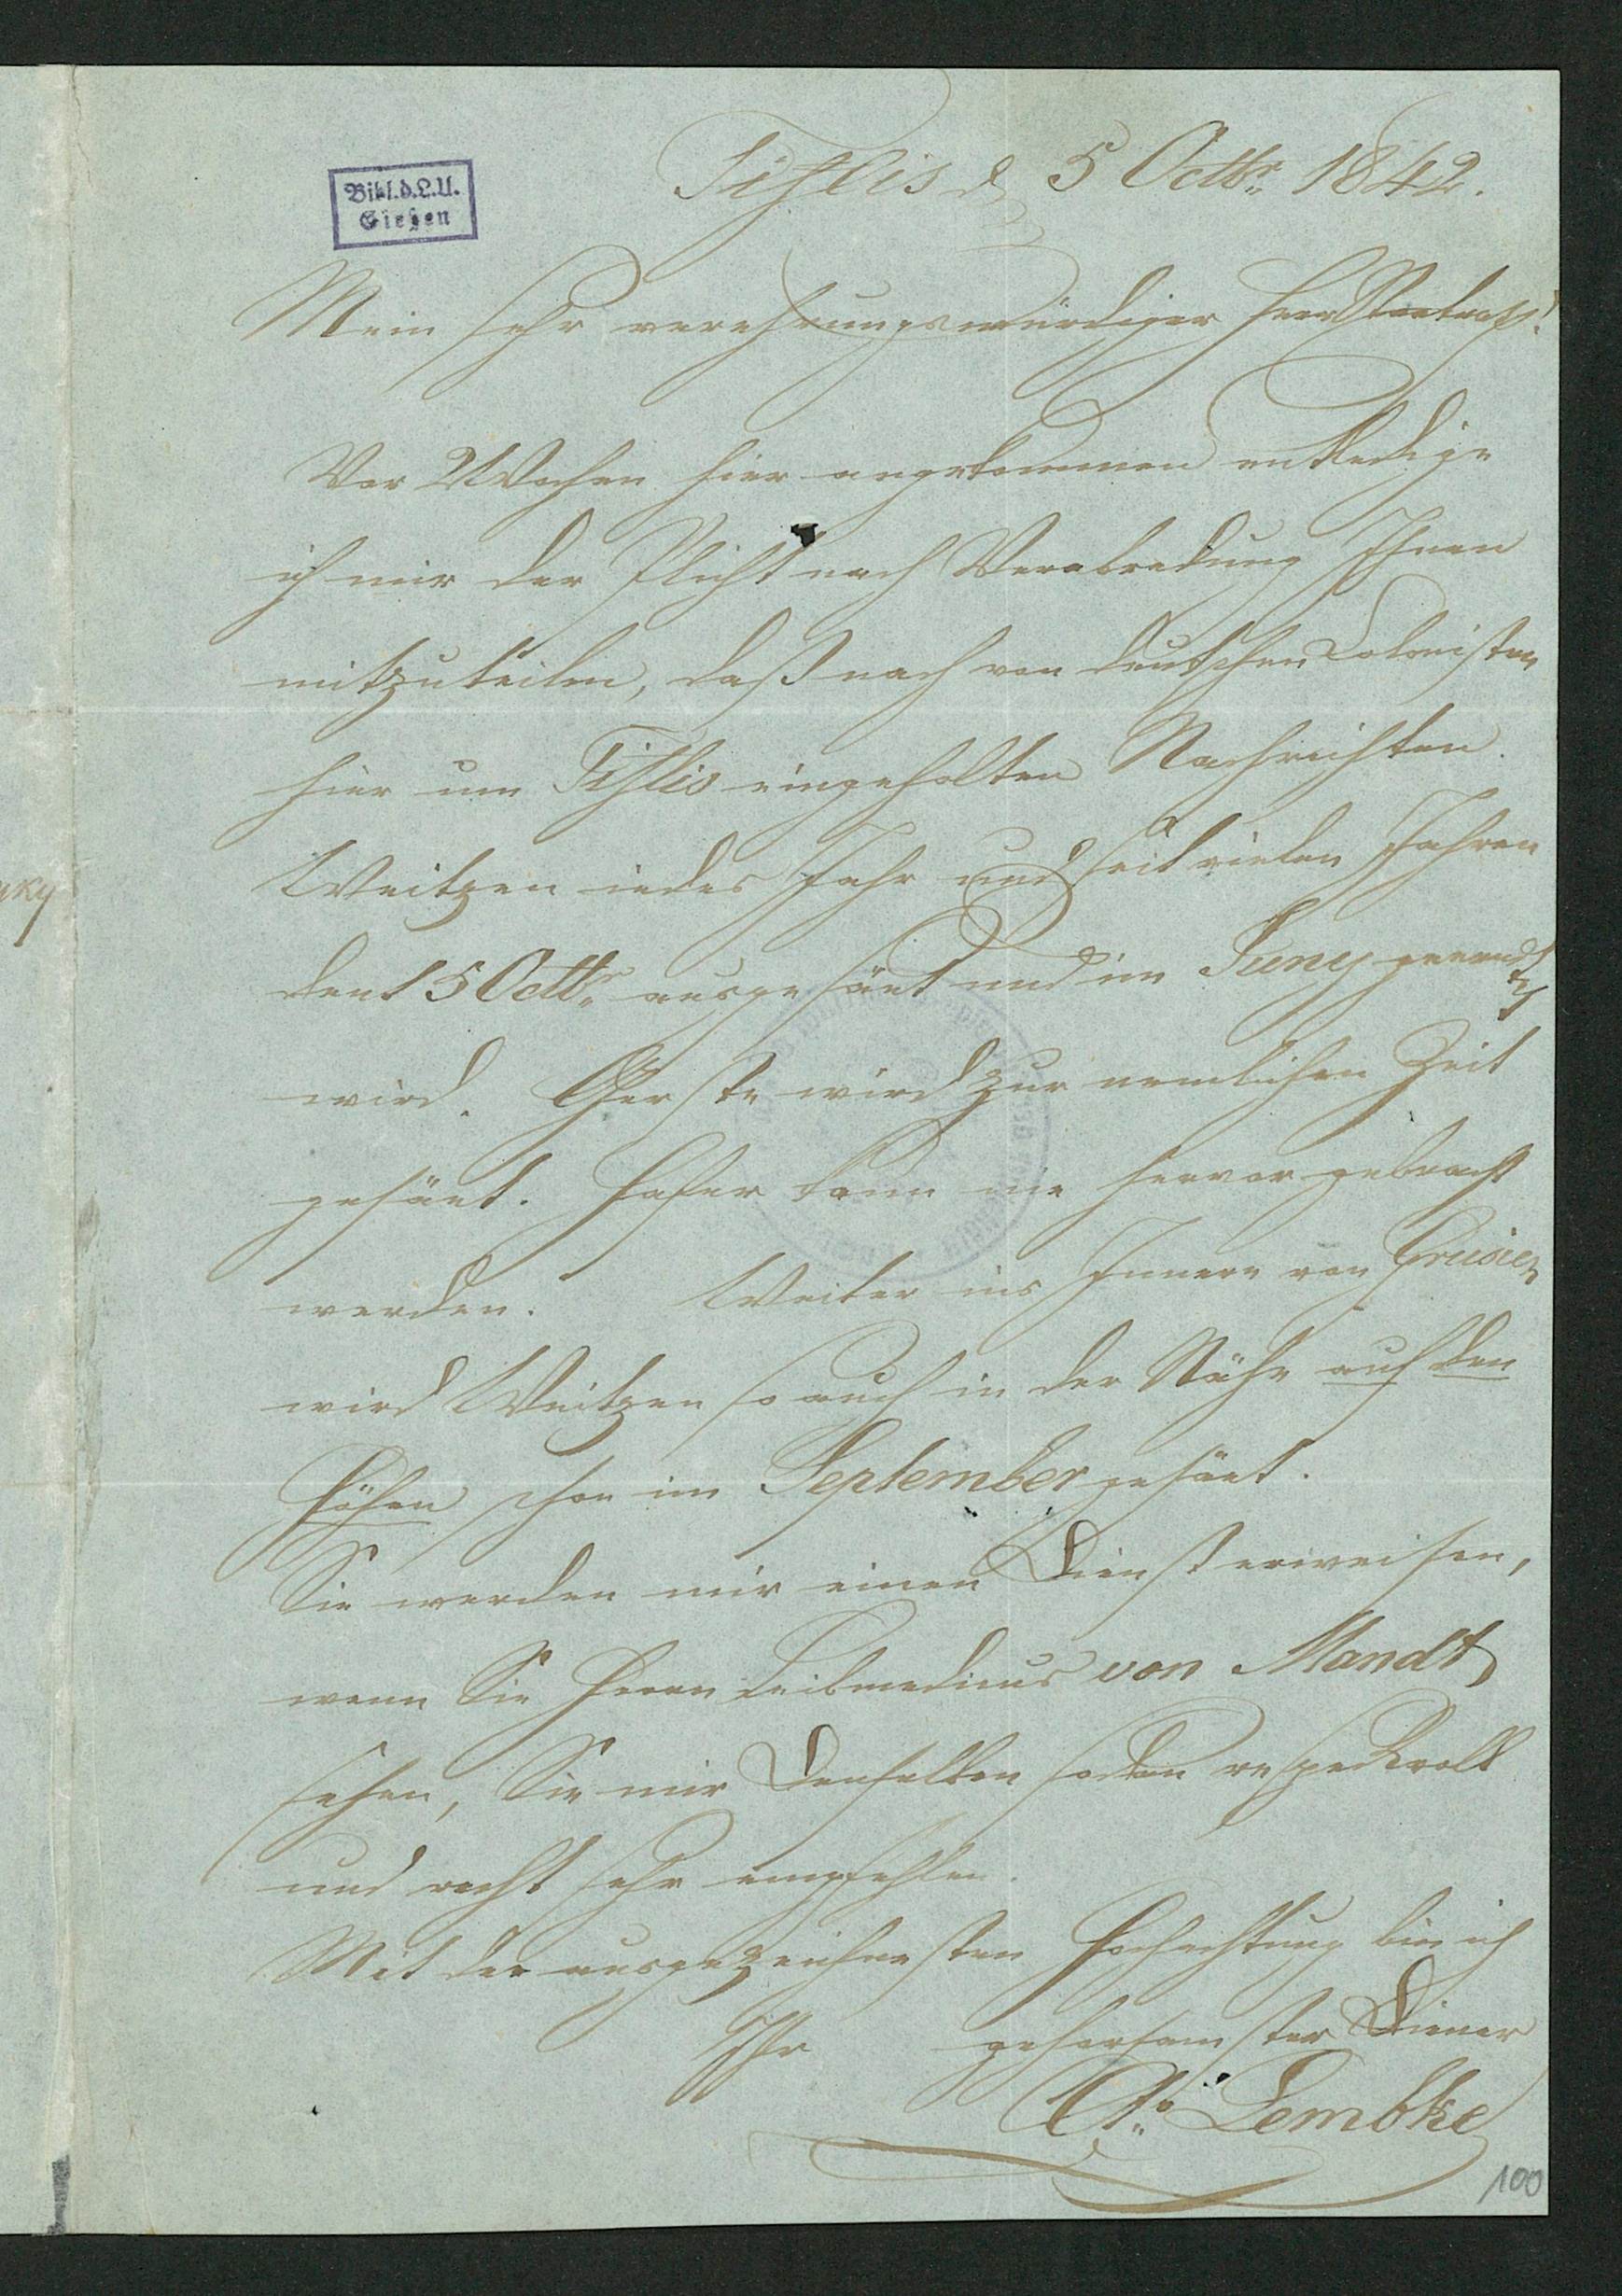 Bibl.d.L.U.
Gießen
Tiflis d 5 Octbr. 1842.
Mein sehr verehrungswürdiger Herr Staatrath!
Vor 2 Wochen hier angekommen entledige
ich mir der Pflicht nach Verabredung Ihnen
mitzuteilen, daß nach von deutschen Colonisten
hier um Tiflis eingeholten Nachrichten
Weitzen iedes Jahr und seit vielen Jahren
den 15 Octbr. ausgesäet und im Juny geerndtet
wird. Gerste wird zur nemlichen Zeit
gesäet. Hafer kann nie hervor gebracht
werden. Weiter ins Innere von Grusien
wird Weitzen so auch in der Nähe auf den
Höhen schon im September gesäet.
Sie werden mir einen Dienst erweisen,
wenn Sie Herrn Leibmedicus von Mandt
sehen, Sie mir Denselben respectvoll
und recht sehr empfehlen.
Mit der ausgezeichnesten Hochachtung bin ich
Ihr gehorsamster Diener
Lembke
100